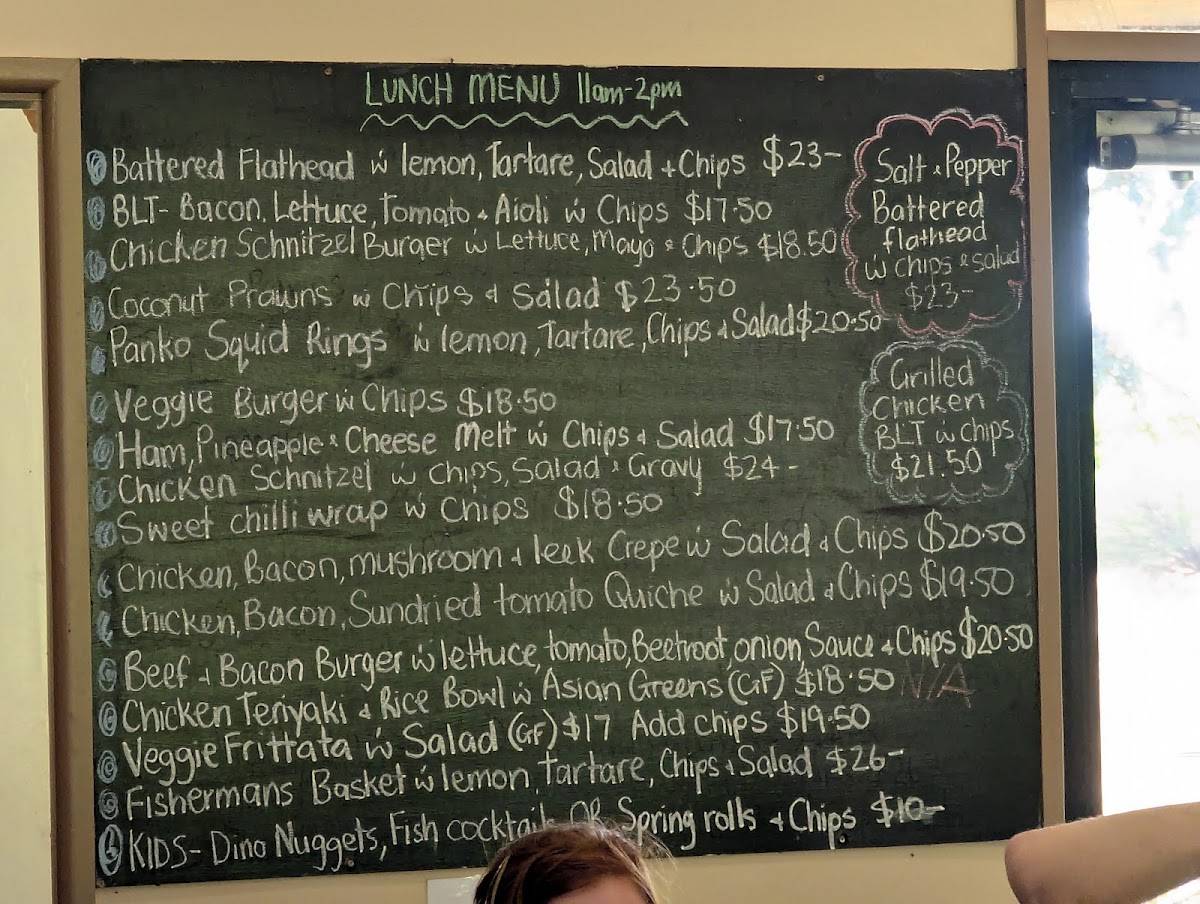 LUNCH MENU 11am-2pm
Battered Flathead w lemon, Tartare, Salad + Chips $23-
BLT- Bacon, Lettuce, Tomato + Aioli w Chips $17.50
Chicken Schnitzel Burger w Lettuce, Mayo & Chips $18.50
Coconut Prawns w Chips & Salad $23.50
Panko Squid Rings w lemon, Tartare, Chips & Salad $20.50
Veggie Burger w Chips $18.50
Ham, Pineapple & Cheese Melt w Chips & Salad $17.50
Chicken Schnitzel w Chips, Salad & Gravy $24-
Sweet chilli wrap w Chips $18.50
Chicken, Bacon, mushroom & leek Crepe w Salad & Chips $20.50
Chicken, Bacon, Sundried tomato Quiche w Salad & Chips $19.50
Beef & Bacon Burger w lettuce, tomato, Beetroot, onion, Sauce & Chips $20.50
Chicken Teriyaki & Rice Bowl w Asian Greens (GF) $18.50 N/A
Veggie Frittata w Salad (GF) $17 Add chips $19.50
Fishermans Basket w lemon, Tartare, Chips & Salad $26-
KIDS- Dino Nuggets, Fish cocktails OR Spring rolls + Chips $10-
Salt & Pepper
Battered
flathead
w chips & salad
$23-
Grilled
Chicken
BLT w chips
$21.50